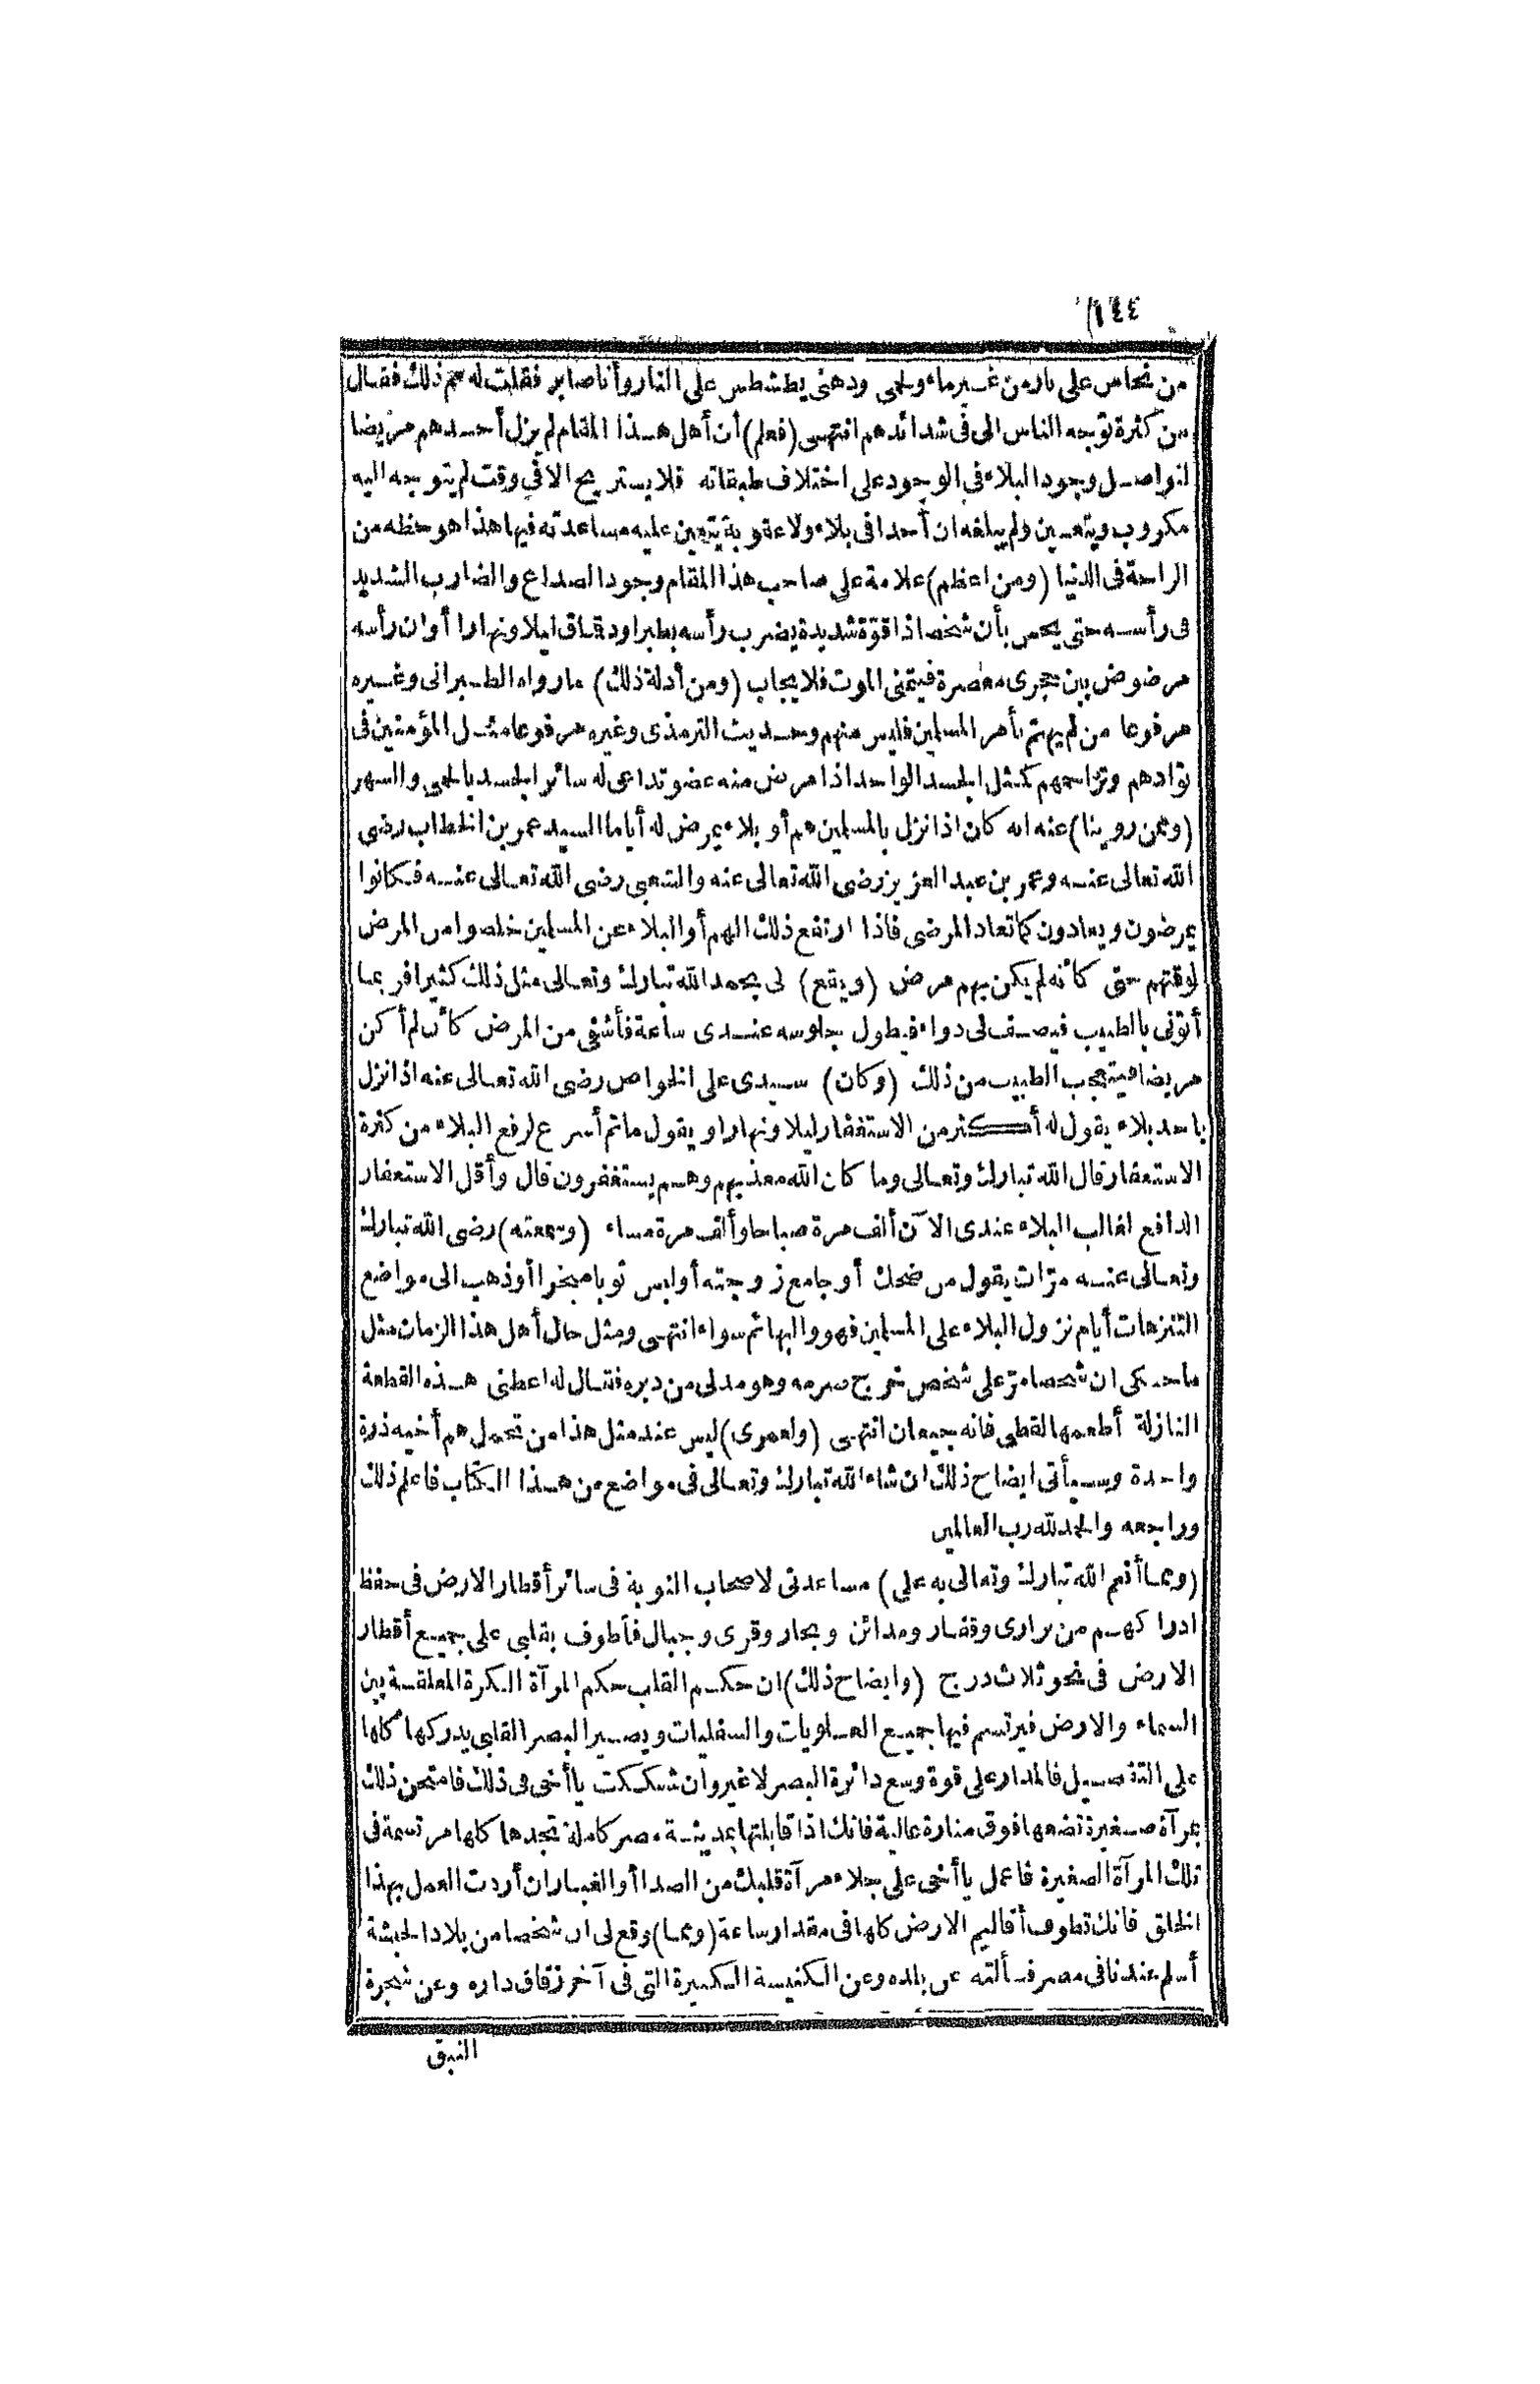 ١٤٤
من نحاس على نار من غير ماء ولحمى ودهنى يطشطش على النار وأنا صابر فقلت له مم ذلك فقال
من كثرة توجه الناس الى فى شدائدهم انتهى (فعلم) أن أهل هذا المقام لم يزل أحدهم مريضا
لتواصل وجود البلاء فى الوجود على اختلاف طبقاته فلا يستريح الا فى وقت لم يتوجه اليه
مكروب ويتعين ولم يبلغه ان أحدا فى بلاء ولا عقوبة يتعين عليه مساعدته فيها هذا هو حظه من
الراحة فى الدنيا (ومن اعظم) علامة على صاحب هذا المقام وجود الصداع والضارب الشديد
فى رأسه حتى يحس بأن شخصا ذا قوّة شديدة يضرب رأسه بطبر او دقاق ليلا ونهارا أو ان رأسه
مرضوض بين حجرى معصرة فيتمنى الموت فلا يجاب (ومن أدلة ذلك) ما رواه الطبرانى وغيره
مرفوعا من لم يهتم بأمر المسلمين فليس منهم وحديث الترمذى وغيره مرفوعا مثل المؤمنين فى
توادهم وتراحمهم كمثل الجسد الواحد اذا مرض منه عضو تداعى له سائر الجسد بالحمى والسهر
(وممن روينا) عنه انه كان اذا نزل بالمسلمين هم أو بلاء يمرض له أياما السيد عمر بن الخطاب رضى
الله تعالى عنه وعمر بن عبد العزيز رضى الله تعالى عنه والشعبى رضى الله تعالى عنه فكانوا
يمرضون ويعادون كما تعاد المرضى فاذا ارتفع ذلك الهم أو البلاء عن المسلمين خلصوا من المرض
لوقتهم حتى كأنه لم يكن بهم مرض (ويقع) لى بحمد الله تبارك وتعالى مثل ذلك كثيرا فربما
أتونى بالطبيب فيصف لى دواء فيطول جلوسه عندى ساعة فأشفى من المرض كأن لم أكن
مريضا فيتعجب الطبيب من ذلك (وكان) سيدى على الخواص رضى الله تعالى عنه اذا نزل
باحد بلاء يقول له أكثر من الاستغفار ليلا ونهارا ويقول ما ثم أسرع لرفع البلاء من كثرة
الاستغفار قال الله تبارك وتعالى وما كان الله معذبهم وهم يستغفرون قال وأقل الاستغفار
الدافع لغالب البلاء عندى الآن ألف مرة صباحا وألف مرة مساء (وسمعته) رضى الله تبارك
وتعالى عنه مرّات يقول من ضحك أو جامع زوجته أو لبس ثوبا مبخرا أو ذهب الى مواضع
التنزهات أيام نزول البلاء على المسلمين فهو والبهائم سواء انتهى ومثل حال أهل هذا الزمان مثل
ما حكى ان شخصا مرّ على شخص خرج صرمه وهو مدلى من دبره فقال له اعطنى هذه القطعة
النازلة أطعمها لقطى فانه جيعان انتهى (ولعمرى) ليس عند مثل هذا من تحمل هم أخيه ذرة
واحدة وسيأتى ايضاح ذلك ان شاء الله تبارك وتعالى فى مواضع من هذا الكتاب فاعلم ذلك
وراجعه والحمد لله رب العالمين
(ومما أنعم الله تبارك وتعالى به على) مساعدتى لاصحاب النوبة فى سائر أقطار الارض فى حفظ
ادراكهم من برارى وقفار ومدائن وبحار وقرى وجبال فأطوف بقلبى على جميع أقطار
الارض فى نحو ثلاث درج (وايضاح ذلك) ان حكم القلب حكم المرآة الكرة المعلقة بين
السماء والارض فيرتسم فيها جميع العلويات والسفليات ويصير البصر القلبى يدركها كلها
على التفصيل فالمدار على قوة وسع دائرة البصر لا غير وان شككت يا أخى فى ذلك فامتحن ذلك
بمرآة صغيرة تضعها فوق منارة عالية فانك اذا قابلتها بمدينة مصر كاملة تجدها كلها مرتسمة فى
تلك المرآة الصغيرة فاعمل يا أخى على جلاء مرآة قلبك من الصدا أو الغبار ان أردت العمل بهذا
الخلق فانك تطوف أقاليم الارض كلها فى مقدار ساعة (ومما) وقع لى ان شخصا من بلاد الحبشة
أسلم عندنا فى مصر فسألته عن بلده وعن الكنيسة الكبيرة التى فى آخر زقاق داره وعن شجرة
النبق